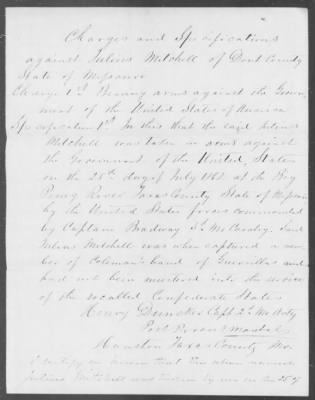 Charges and Specifications
against Julius Mitchell of Dent County
State of Missouri
Charge 1st Bearing arms against the Govern-
ment of the United States of America
Specification 1st In this that the said Julius
Mitchell was taken in arms against
the Government of the United States
on the 28th day of July 1862 at the Big
Piney River Texas County State of Missouri
by the United States forces commanded
by Captain Bradway 3d Mo Cavalry. Said
Julius Mitchell was when captured a mem-
ber of Coleman's band of Guerrillas and
had not been mustered into the service
of the so called Confederate States
Henry Capt 2d Mo
Post Provost Marshal
Houston Texas County Mo
I certify on honor that the above named
Julius Mitchell was taken by me on the 28th